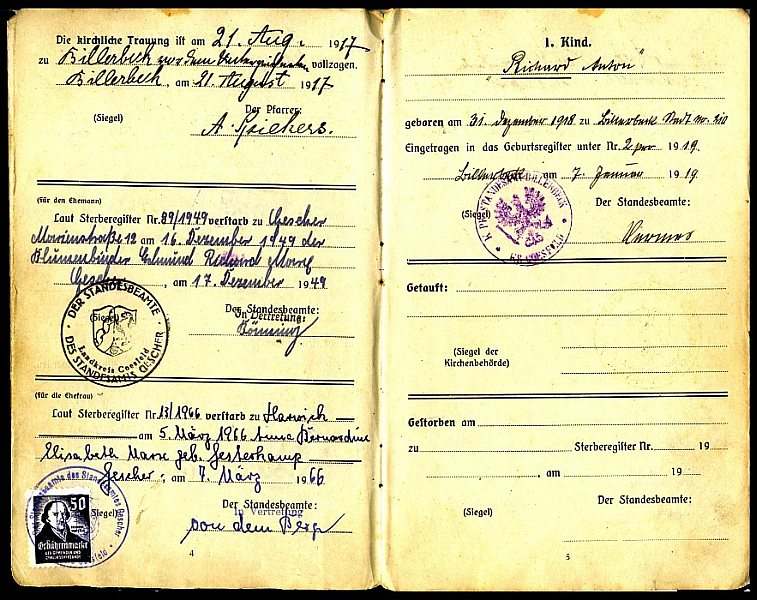 Die kirchliche Trauung ist am 21. Aug. 1917
zu Billerbeck vor dem Unterzeichneten vollzogen.
Billerbeck, am 21. August 1917
Der Pfarrer:
(Siegel)
(für den Ehemann)
Laut Sterberegister Nr. 89/1949 verstarb zu Gescher
Marienstraße 12 am 16. Dezember 1949 der
Blumenbinder Edmund Richard
Gescher, am 17. Dezember 1949
Der Standesbeamte:
In Vertretung:
(Siegel)
DER STANDESBEAMTE
DES STANDESAMTS GESCHER
Landkreis Coesfeld
(für die Ehefrau)
Laut Sterberegister Nr. 13/1966 verstarb zu Harwick
am 5. März 1966 Anna Bernardine
Elisabeth geb. Hesterkamp
Gescher, am 7. März 1966
Der Standesbeamte:
In Vertretung
(Siegel)
von dem Berge
50
Gebührenmarke
4
1. Kind.
"Richard Anton"
geboren am 31. Dezember 1918 zu Billerbeck Stadt Nr. 210
Eingetragen in das Geburtsregister unter Nr. 2 pro 1919.
Billerbeck am 7. Januar 1919
Der Standesbeamte:
(Siegel)
K. PR. STANDESAMT BILLERBECK
KR. COESFELD
Hermes
Getauft:
(Siegel der
Kirchenbehörde)
Gestorben am
zu Sterberegister Nr. 19
, am 19
Der Standesbeamte:
(Siegel)
5